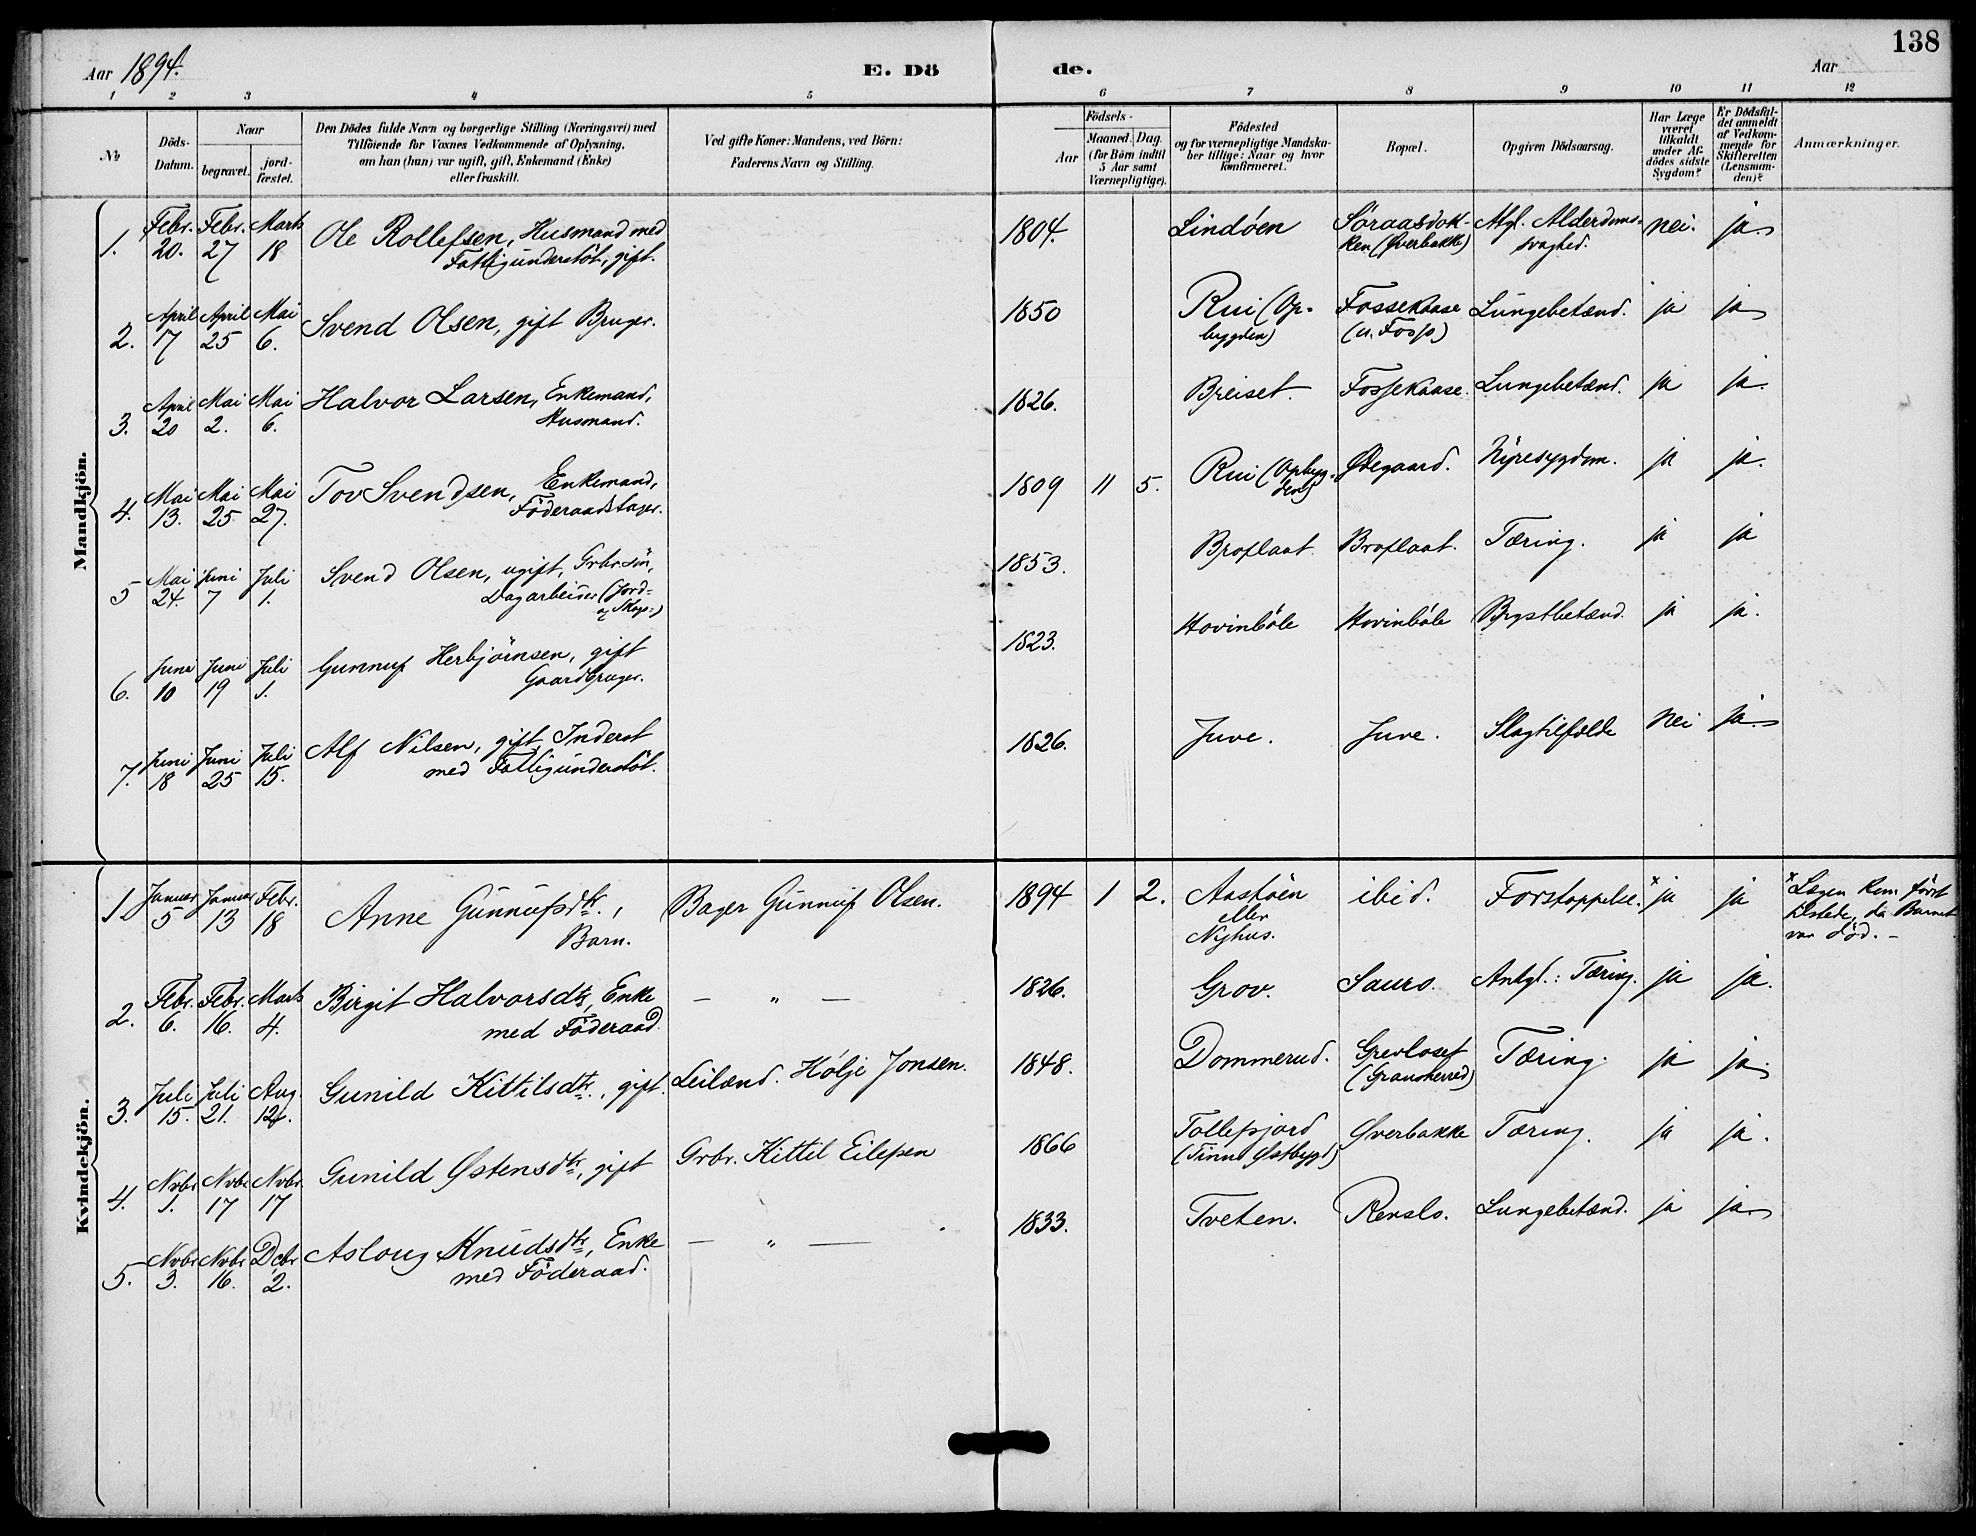 138
Aar 1894. E. Dö de. Aar
1 2 3 4 5 6 7 8 9 10 11 12
No
Döds-Datum.
Naar
begravet.
jord-fæstet.
Den Dödes fulde Navn og borgerlige Stilling (Næringsvei) med
Tilföiende for Voxnes Vedkommende af Oplysning,
om han (hun) var ugift, gift, Enkemand (Enke)
eller fraskilt.
Ved gifte Koner: Mandens, ved Börn:
Faderens Navn og Stilling.
Födsels-
Aar
Maaned. Dag.
(for Börn indtil
5 Aar samt
Værnepligtige).
Födested
og for værnepligtige Mandska-
ber tillige: Naar og hvor
konfirmeret.
Bopæl.
Opgiven Dödsaarsag.
Har Læge
været
tilkaldt
under Af-
dödes sidste
Sygdom?
Er Dödsfal-
det anmeldt
af Vedkom-
mende for
Skifteretten
(Lensman-
den)?
Anmærkninger.
Mandkjön.
1. Febr. 20. Febr. 27 Marts 18 Ole Rollefsen, Husmand med
Fattigunderstöt, gift.
1804. Lindöen Søraasdok-
ken (Øverbakke) Mgl. Alderdoms-
svaghed. nei. ja
2. April 17 April 25 Mai 6. Svend Olsen, gift Bruger.
1850 Rui (Op-
bygden) Fossekaase
(u. Foss) Lungebetænd. ja ja
3. April 20 Mai 2. Mai 6. Halvor Larsen, Enkemand,
Husmand.
1826. Breiset. Fossekaase. Lungebetænd. ja ja.
4. Mai 13. Mai 25 Mai 27. Tov Svendsen, Enkemand,
Föderaadstager.
1809 11 5. Rui (Opbyg-
den) Ødegaard. Nyresygdom. ja ja.
5 Mai 24. Juni 7 Juli 1. Svend Olsen, ugift, Grbr.sön,
Dagarbeider (Jord-
og Skogs-)
1853. Broflaat. Broflaat. Tæring. ja ja
6. Juni 10 Juni 19 Juli 1. Gunnuf Herbjörnsen, gift
Gaardbruger.
1823. Hovinböle Hovinböle Brystbetænd. ja ja.
7. Juni 18 Juni 25 Juli 15. Alf Nilsen, gift, Inderst
med Fattigunderstöt.
1826. Juve. Juve. Slagtilfælde nei ja.
Kvindekjön.
1. Januar 5 Januar 13 Febr. 18 Anne Gunnufsdtr.,
Barn. Bager Gunnuf Olsen.
1894 1 2. Aastöen
eller
Nyhus. ibid. Forstoppelse. ˣja ja ˣLægen kom först
tilstede, da Barnet
var död. –
2. Febr. 6. Febr. 16. Marts 4. Birgit Halvorsdtr, Enke
med Föderaad. — " —
1826. Grov. Sauro. Antgl.: Tæring. ja ja.
3. Juli 15. Juli 21. Aug. 12. Gunild Kittilsdtr., gift. Leilænd. Hölje Jonsen.
1848. Dommerud. Grevloset
(Gransherred) Tæring. ja ja.
4. Novbr 1. Novbr 17 Novbr 17 Gunild Østensdtr, gift Grbr. Kittil Eilefsen
1866 Tollefsjord
(Tinns Østbygd) Øverbakke Tæring. ja ja.
5. Novbr 3. Novbr 16. Dcbr 2. Asloug Knudsdtr, Enke
med Föderaad. — " —
1833. Tveten. Renslo. Lungebetænd. ja ja